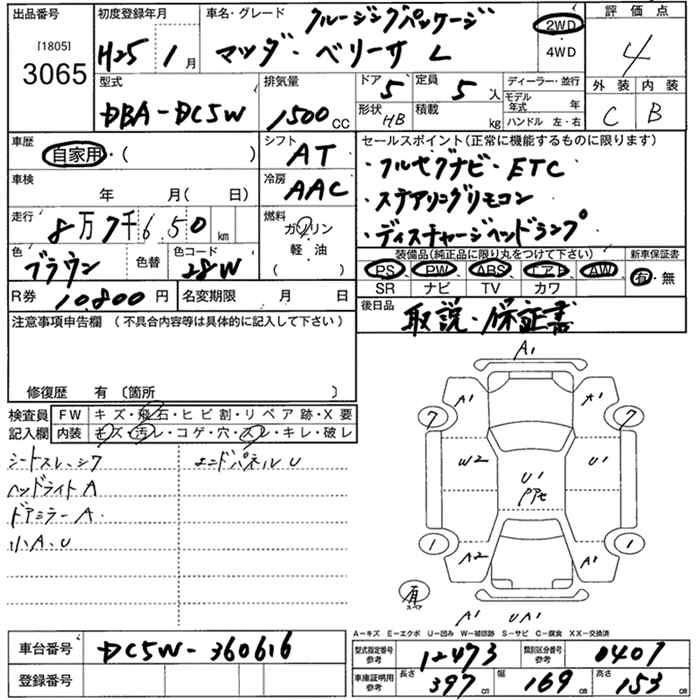 出品番号 初度登録年月 車名・グレード クルージングパッケージ 2WD 評価点
[1805]
3065 H25 1月 マツダ・ベリーサ L ・ 4WD 4
型式 排気量 ドア 5 定員 5人 ディーラー・並行 外装 内装
DBA-DC5W 1500CC 形状 HB 積載 kg モデル年式 年 C B
ハンドル 左・右
車歴 シフト セールスポイント(正常に機能するものに限ります)
自家用・( ) AT ・フルセグナビ・ETC
車検 冷房 ・ステアリングリモコン
年 月( 日) AAC ・ディスチャージヘッドランプ
走行 燃料 装備品(純正品に限り丸をつけて下さい) 新車保証書
8万7千650km ガソリン PS PW ABS エアB AW 有・無
色 色替 色コード 軽・油 SR ナビ TV カワ
ブラウン 28W ( )
R券 10.800円 名変期限 月 日 後日品 取説・保証書
注意事項申告欄(不具合内容等は具体的に記入して下さい)
修復歴 有 〔箇所 〕
検査員 FW キズ・飛石・ヒビ割・リペア跡・X要
記入欄 内装 キズ・汚レ・コゲ・穴・スレ・キレ・破レ
シートスレ、シワ エンドパネルU
ヘッドライトA
ドアミラーA
小A、U
A1
A1 A1
7 7
W2 U1 U1
PP
1 1
A2 A1
有
スペア
A1 UA1
A-キズ E-エクボ U-凹み W-補修跡 S-サビ C-腐食 XX-交換済
車台番号 DC5W-360616 型式指定番号 参考 12473 類別区分番号 参考 0407
登録番号 車庫証明用 参考 長さ 397cm 幅 169cm 高さ 153cm